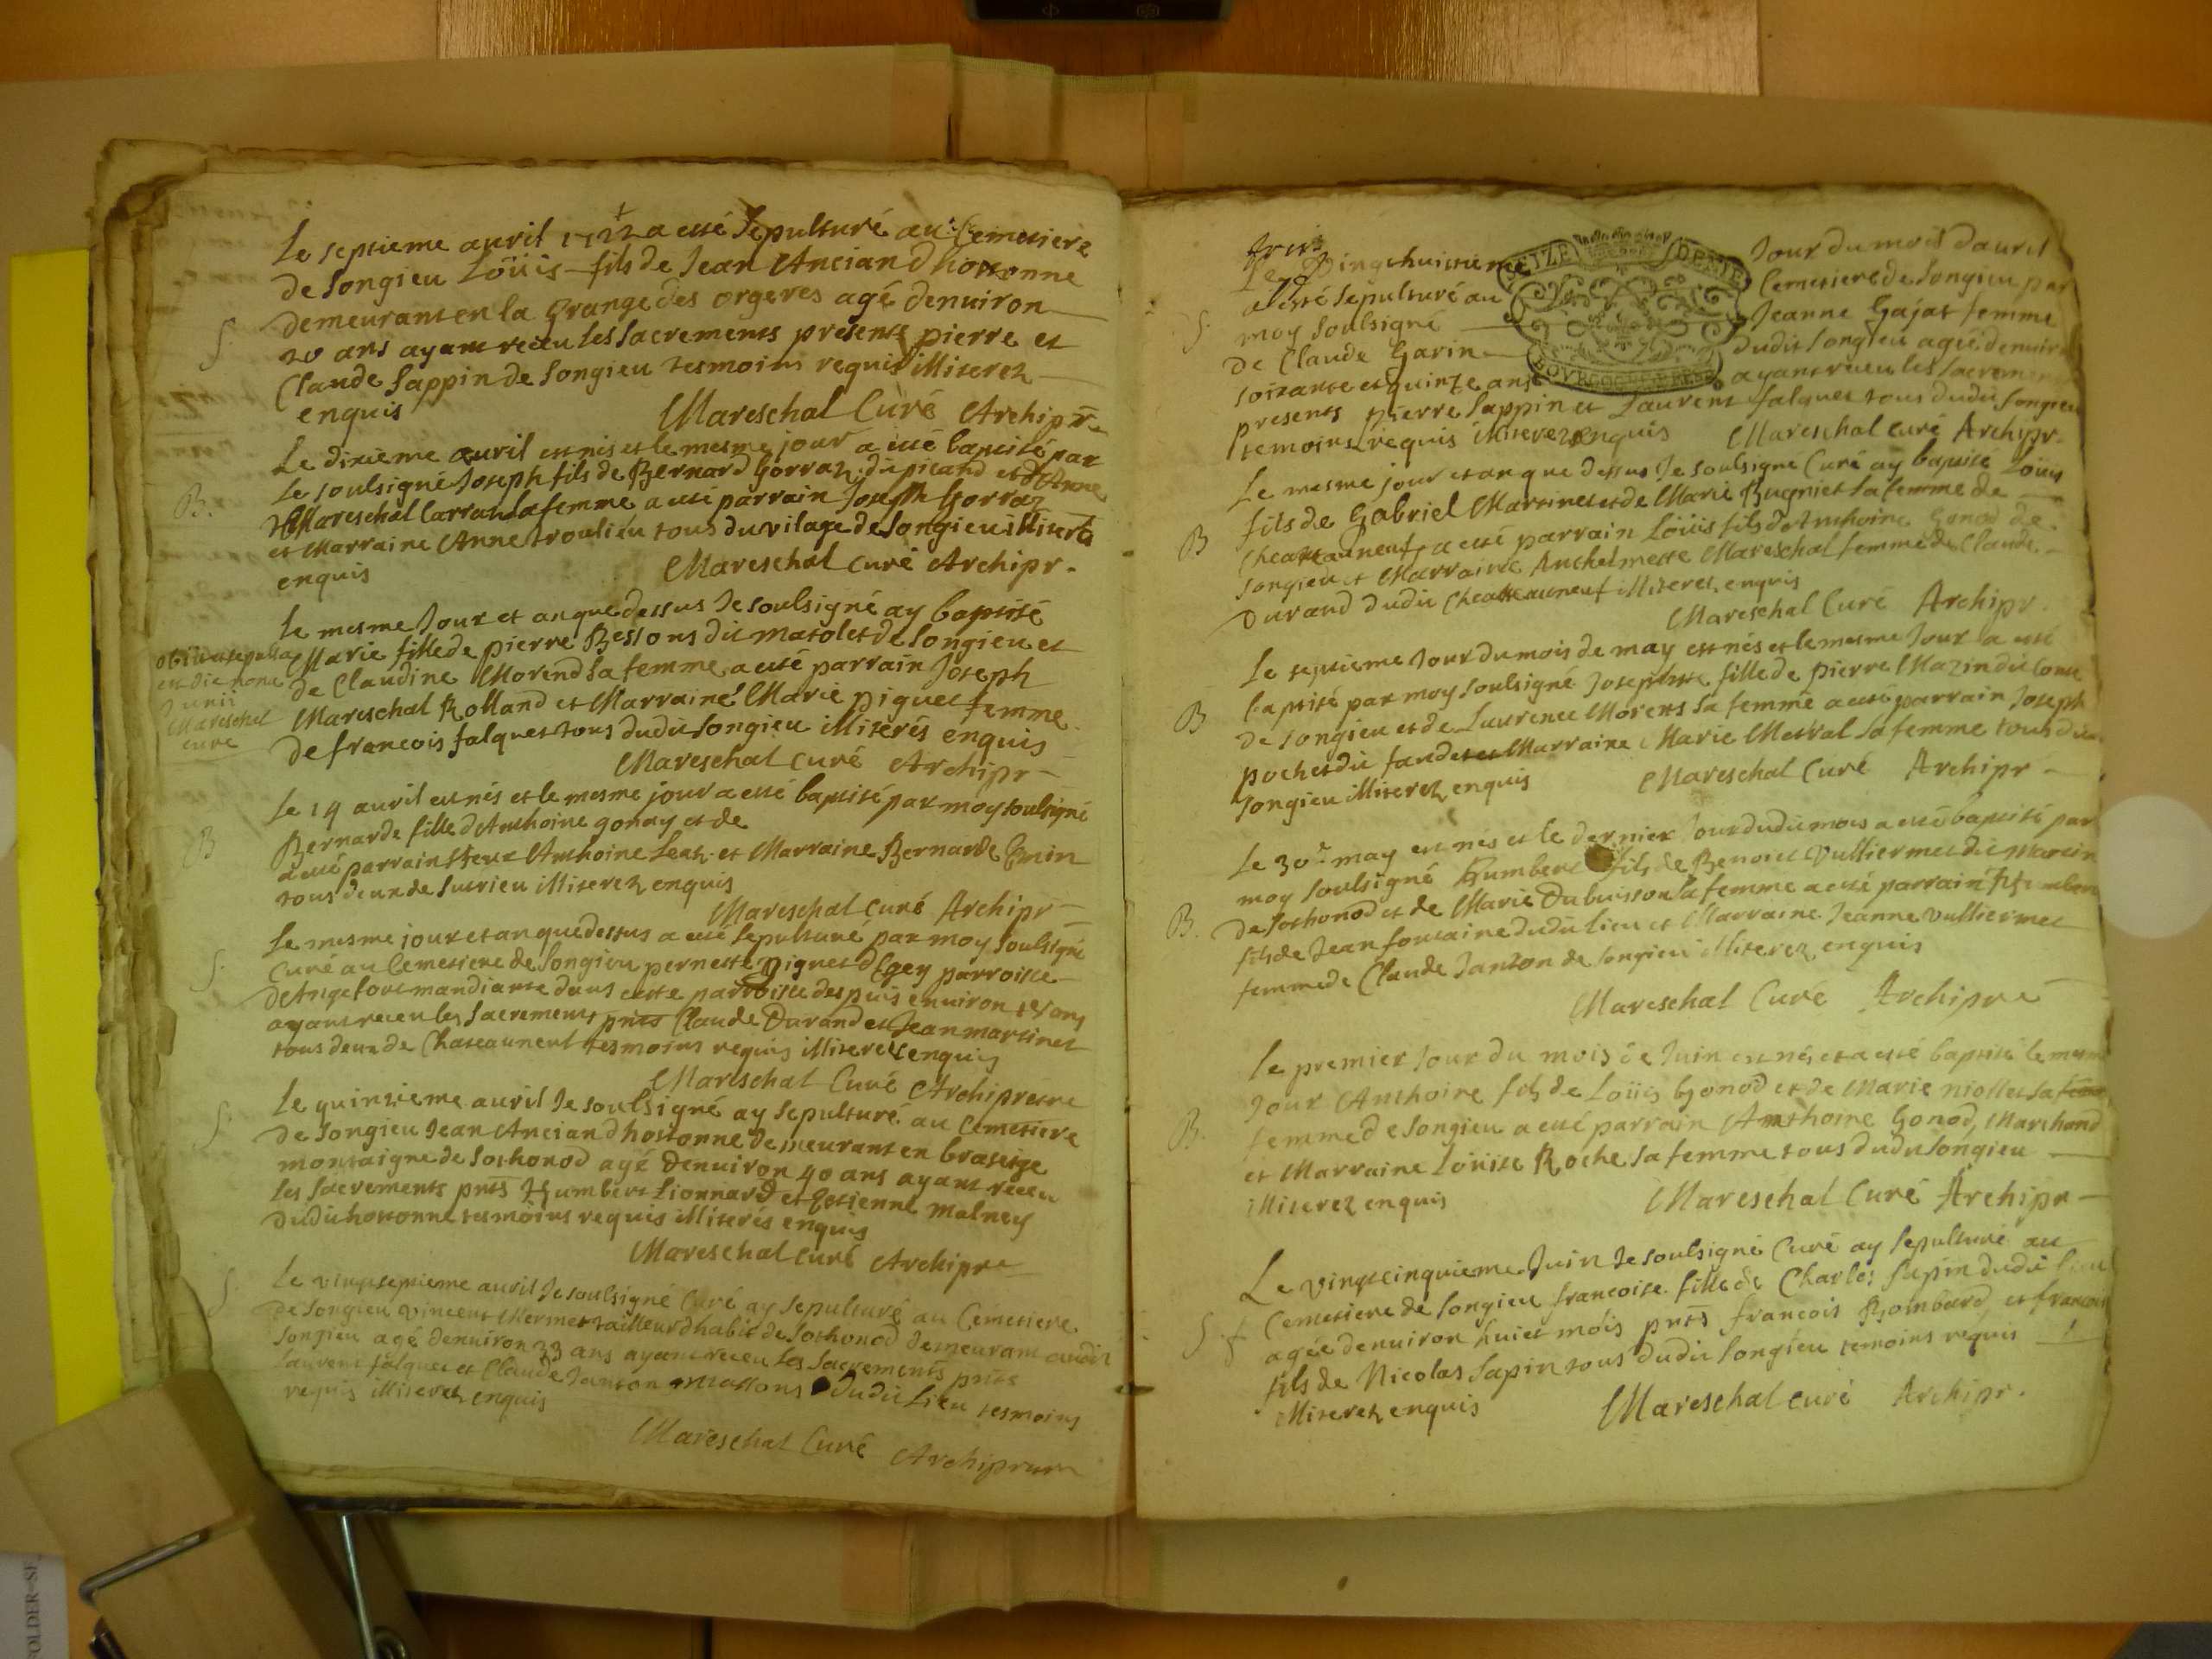 Le septieme auril 1722 a esté sepulturé au Cemetiere
de Songieu Loüis fils de Jean Anciand hotonne
demeurant en la Grange des orgeres agé denuiron
20 ans ayant receu les sacrements presents pierre et
S
Claude Sappin de Songieu tesmoins requis illiterez
enquis
Mareschal Curé Archipr.
Le dixieme auril est nés et le mesme jour a esté baptisé par
le soulsigné Joseph fils de Bernard Gorraz et d'Anne
B.
Mareschal sa femme a esté parrain Joseph Gorraz
et Marraine Anne tous du vilage de Songieu illiterés
enquis
Mareschal Curé Archipr.
Le mesme Jour et an que dessus Je soulsigné ay baptisé
Marie fille de pierre Bessons dit matolet de Songieu et
de Claudine Morend sa femme a esté parrain Joseph
Mareschal Rolland et Marraine Marie piguet femme
de francois falquet tous dudit Songieu illiterés enquis
et sepulta
est die nona
Junii
Mareschal
curé
Mareschal Curé Archipr
Le 19 auril est nés et le mesme jour a esté baptisé par moy soulsigné
B
Bernarde fille d'Anthoine gonay et de
a esté parrain Anthoine et Marraine Bernarde
tous deux de Sutrieu illiterez enquis
Mareschal Curé Archipr
Le mesme jour et an que dessus a esté sepulturé par moy soulsigné
S.
Curé au Cemetiere de Songieu pernette piguet parroisse
mandiante dans cette parroisse despuis enuiron ans
ayant receu les sacrements pnts Claude Durand et Jean martinet
tous deux de Chateauneuf tesmoins requis illiterez enquis
Mareschal Curé Archipretre
Le quinzieme auril Je soulsigné ay sepulturé au Cemetiere
S.
de Songieu Jean Anciand hottonne demeurant en
montaigne de Sothonod agé denuiron 40 ans ayant receu
les sacrements pnts Humbert Lionnard et Estienne
dudit hottonne tesmoins requis illiterés enquis
Mareschal Curé Archipre
S.
Le vingtseptieme auril Je soulsigné Curé ay sepulturé au Cemetiere
de Songieu Vincent Mermet tailleur dhabit de Sothonod demeurant audit
Songieu agé denuiron 33 ans ayant receu les sacrements pnts
Laurent falquet et Claude Janton massons dudit Lieu tesmoins
requis illiterez enquis
Mareschal Curé Archipretre
Le vingthuitieme Jour du mois dauril
a esté sepulturé au Cemetiere de Songieu par
S.
moy soulsigné Jeanne Gajat femme
de Claude Garin dudit Songieu agée denuiron
soixante et quinze ans ayant receu les sacrements
SEIZE DENIE
presents pierre Sappin et Laurent falquet tous dudit Songieu
temoins requis illiterez enquis Mareschal Curé Archipr.
Le mesme jour et an que dessus Je soulsigné Curé ay baptisé Loüis
fils de Gabriel Martinet et de Marie Bugniet sa femme de
B
Cheateauneuf, a esté parrain Loüis fils de Anthoine Gonod de
Songieu et Marraine Anthelmette Mareschal femme de Claude
Durand dudit Cheateauneuf illiterez enquis
Mareschal Curé Archipr.
Le septieme Jour du mois de may est nés et le mesme Jour la esté
B
baptisé par moy soulsigné Josephte fille de pierre Mazin dit
de Songieu et de Laurence Morens sa femme a esté parrain Joseph
pochet dit fandet et Marraine Marie Mestral sa femme tous dudit
Songieu illiterez enquis Mareschal Curé Archipr
Le 30e may est nés et le dernier Jour dudit mois a esté baptisé par
moy soulsigné Humbert fils de Benoict Vulliermet dit Martin
B.
de Sothonod et de Marie Dubuisson sa femme a esté parrain Humbert
fils de Jean fontaine dudit lieu et Marraine Jeanne Vulliermet
femme de Claude Janton de Songieu illiterez enquis
Mareschal Curé Archipre
Le premier Jour du mois de Juin est nés et a esté baptisé le mesme
Jour Anthoine fils de Loüis Gonod et de Marie niollet sa
B.
femme de Songieu a esté parrain Anthoine Gonod Marchand
et Marraine Loüise Roche sa femme tous dudit Songieu
illiterez enquis Mareschal Curé Archipr
Le vingtcinquieme Juin Je soulsigné Curé ay sepulturé au
Cemetiere de Songieu francoise fille de Charles Sapin dudit lieu
S.
agée denuiron huict mois pnts francois Bombard et francois
fils de Nicolas Sapin tous dudit Songieu temoins requis
illiterez enquis Mareschal Curé Archipr.